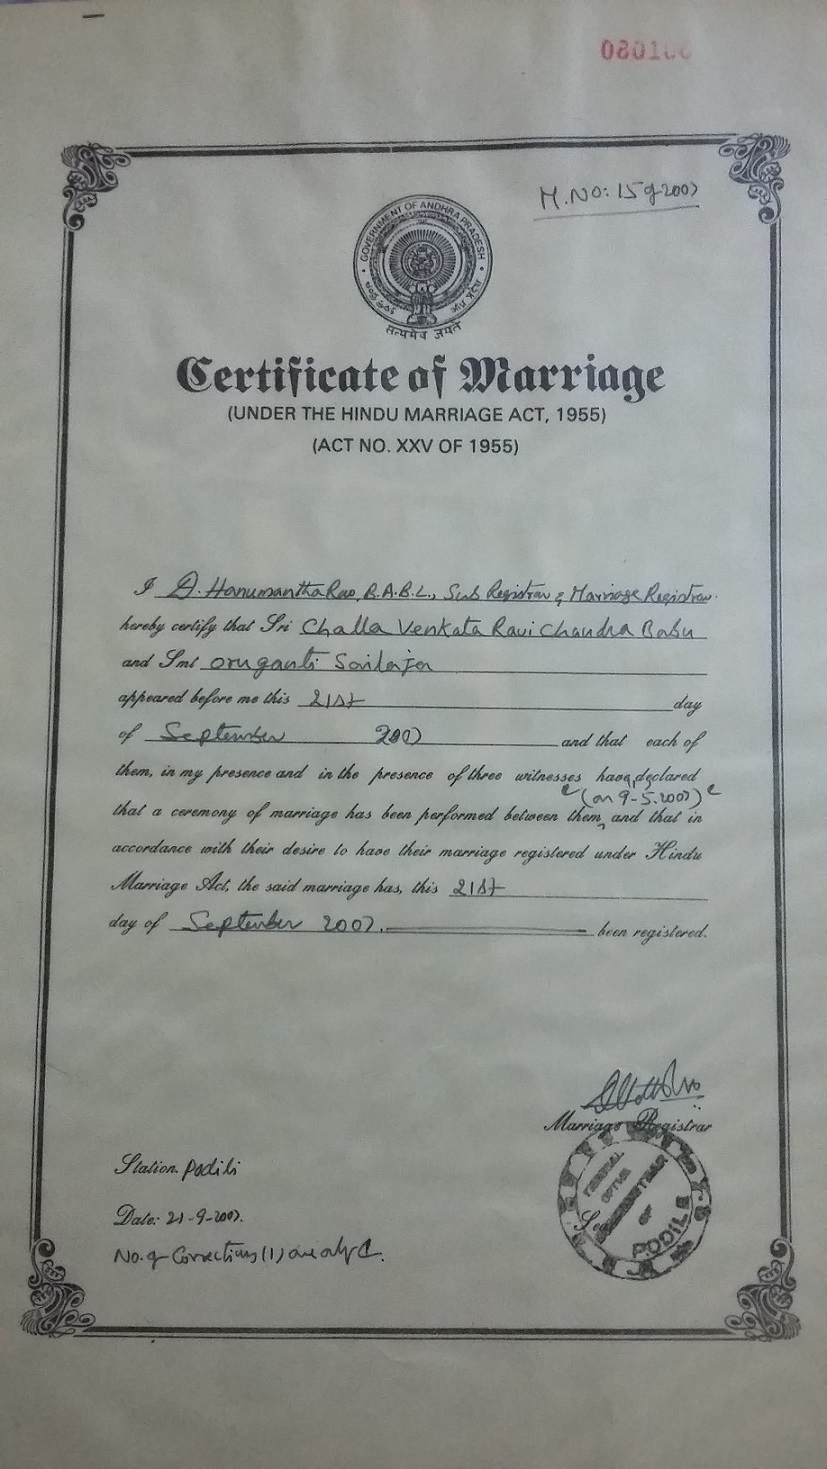 M.NO: 15 of 2007
GOVERNMENT OF ANDHRA PRADESH
सत्यमेव जयते
Certificate of Marriage
(UNDER THE HINDU MARRIAGE ACT, 1955)
(ACT NO. XXV OF 1955)
I D. Hanumantha Rao, B.A.B.L., Sub Registrar & Marriage Registrar
hereby certify that Sri Challa Venkata Ravi Chandra Babu
and Smt oruganti Sailaja
appeared before me this 21st day
of September 2007 and that each of
them, in my presence and in the presence of three witnesses have, declared
(on 9-5-2007)
that a ceremony of marriage has been performed between them, and that in
accordance with their desire to have their marriage registered under Hindu
Marriage Act, the said marriage has, this 21st
day of September 2007. been registered.
Marriage Registrar
Station. Podili
Date: 21-9-2007.
No. of Corrections (1) one only
OF
PODILI